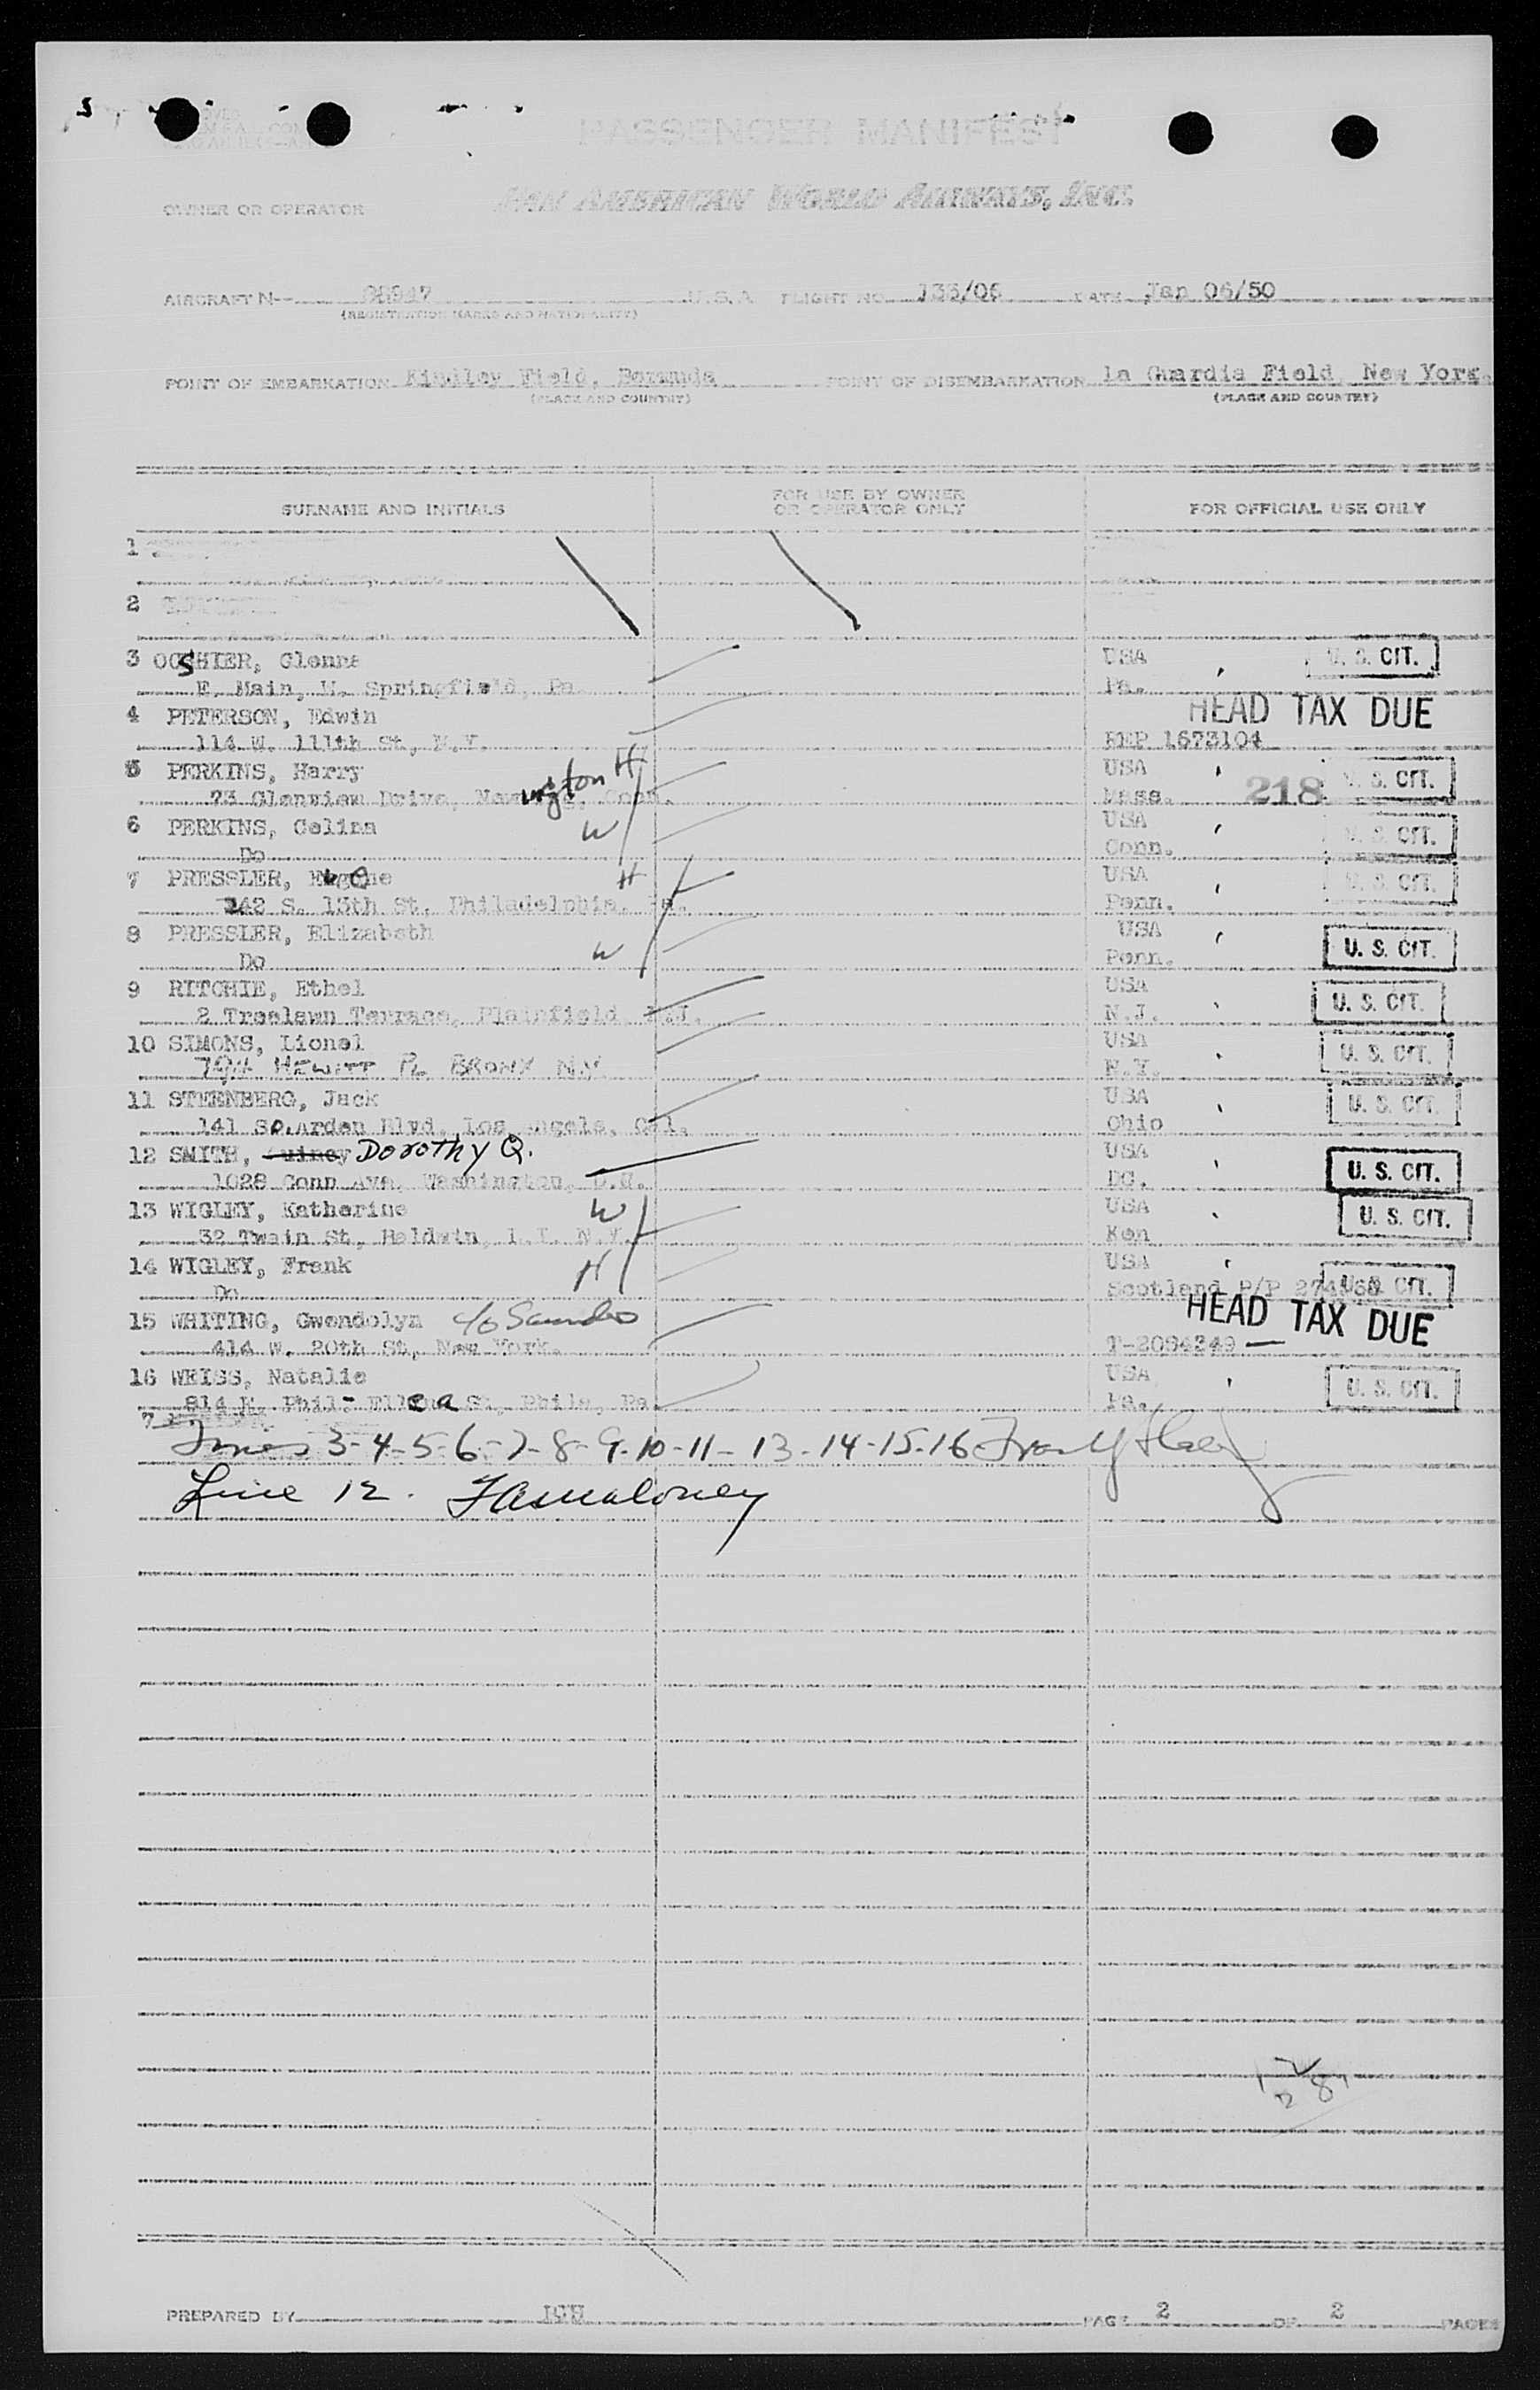 PASSENGER MANIFEST
PAN AMERICAN WORLD AIRWAYS, INC.
OWNER OR OPERATOR
AIRCRAFT N-- 88947 U.S.A. FLIGHT NO. 136/06 DATE Jan 06/50
(REGISTRATION MARKS AND NATIONALITY)
POINT OF EMBARKATION Kindley Field, Bermuda POINT OF DISEMBARKATION la Guardia Field, New York.
(PLACE AND COUNTRY) (PLACE AND COUNTRY)
SURNAME AND INITIALS FOR USE BY OWNER OR OPERATOR ONLY FOR OFFICIAL USE ONLY
1
2
3 OCSHIER, Glenna USA U. S. CIT.
E. Main, N. Springfield, Pa. Pa.
4 PETERSON, Edwin HEAD TAX DUE
114 W. 111th St, N.Y. REP 1673104
5 PERKINS, Harry H USA U. S. CIT.
73 Glenview Drive, Conn. Mass. 218
6 PERKINS, Celina W USA U. S. CIT.
Do Conn.
7 PRESSLER, H USA U. S. CIT.
242 S. 13th St. Philadelphia, Pa. Penn.
8 PRESSLER, Elizabeth W USA U. S. CIT.
Do Penn.
9 RITCHIE, Ethel USA U. S. CIT.
2 Treelawn Terrace, Plainfield N.J. N.J.
10 SIMONS, Lionel USA U. S. CIT.
794 HEWITT PL BRONX N.Y. N.Y.
11 STERNBERG, Jack USA U. S. CIT.
141 So. Arden Blvd. Los Angels, Cal. Ohio
12 SMITH, Quincy Dorothy Q. USA U. S. CIT.
1028 Conn Ave, Washington, D.C. DC.
13 WIGLEY, Katherine W USA U. S. CIT.
32 Twain St, Baldwin, L.I. N.Y. Ken
14 WIGLEY, Frank H USA U. S. CIT.
Do Scotland P/P
15 WHITING, Gwendolyn c/o Saunders HEAD TAX DUE
414 W. 20th St, New York. T-2094349
16 WEISS, Natalie USA U. S. CIT.
814 E. Phil-Ellena St, Phila, Pa. Pa.
7
Lines 3-4-5-6-7-8-9-10-11-13-14-15-16
Line 12. FAMaloney
PREPARED BY PAGE 2 OF 2 PAGES